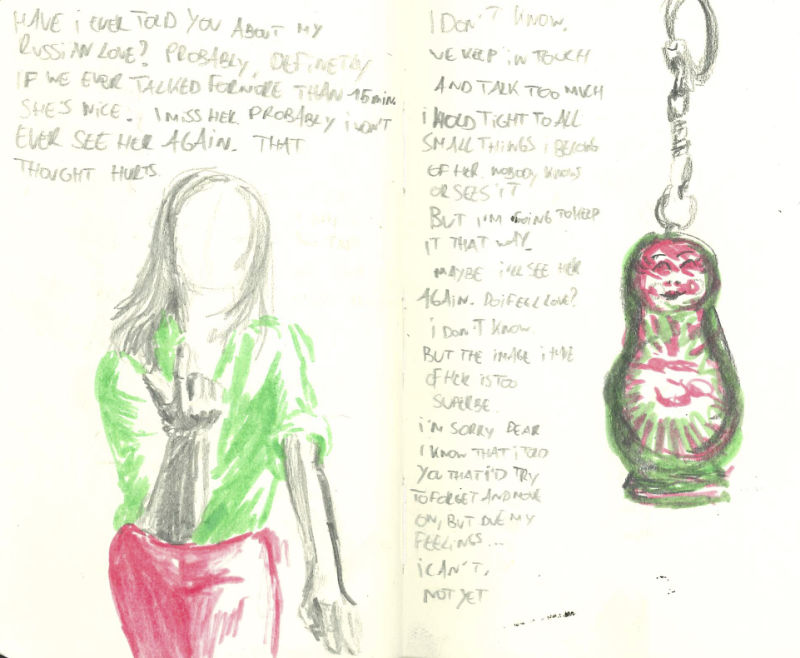 HAVE i EVER TOLD YOU ABOUT MY
RUSSIAN LOVE? PROBABLY, DEFINETLY
IF WE EVER TALKED FOR MORE THAN 15 min
SHE'S NICE. I MISS HER PROBABLY i WON'T
EVER SEE HER AGAIN. THAT
THOUGHT HURTS.
I DON'T KNOW.
WE KEEP iN TOUCH
AND TALK TOO MUCH
i HOLD TIGHT TO ALL
SMALL THINGS i BELONG
OF HER. NOBODY KNOWS
OR SEES iT
BUT i'M GOING TO KEEP
iT THAT WAY.
MAYBE i'LL SEE HER
AGAIN. DO i FEEL LOVE?
i DON'T KNOW.
BUT THE IMAGE i HAVE
OF HER IS TOO
SUPERBE.
i'M SORRY DEAR
I KNOW THAT i TOLD
YOU THAT i'D TRY
TO FORGET AND MOVE
ON, BUT MY
FEELINGS...
i CAN'T,
NOT YET